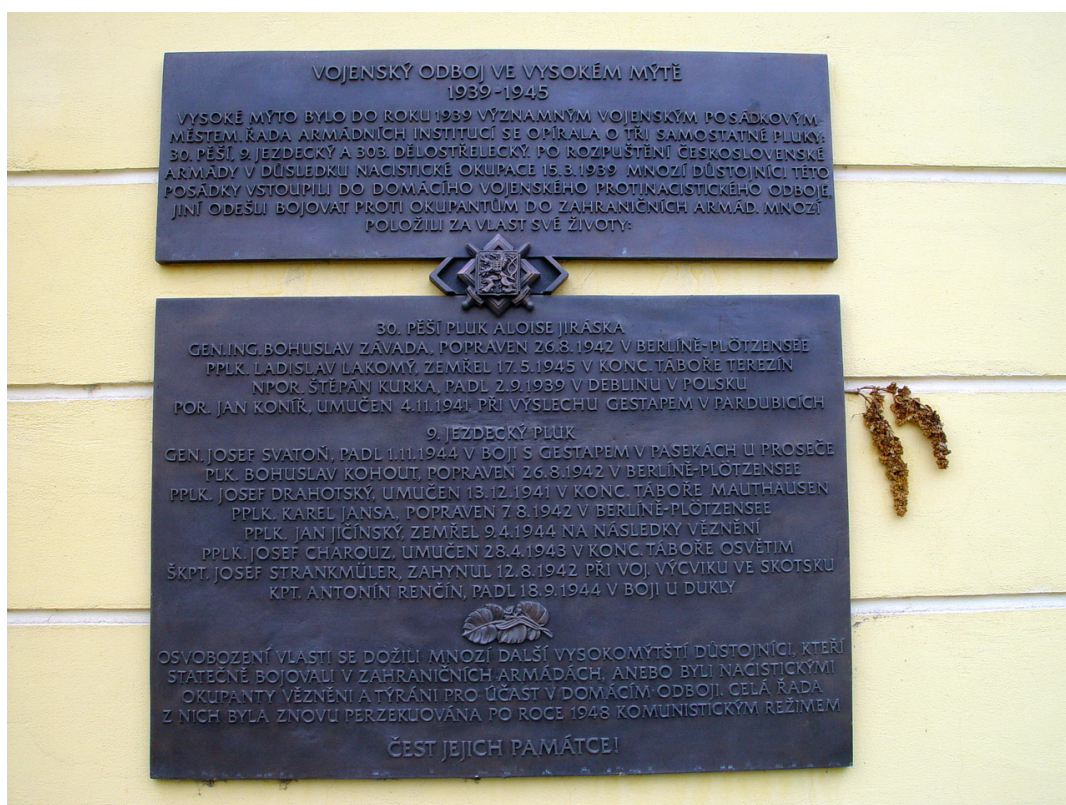 VOJENSKÝ ODBOJ VE VYSOKÉM MÝTĚ
1939-1945
VYSOKÉ MÝTO BYLO DO ROKU 1939 VÝZNAMNÝM VOJENSKÝM POSÁDKOVÝM
MĚSTEM. ŘADA ARMÁDNÍCH INSTITUCÍ SE OPÍRALA O TŘI SAMOSTATNÉ PLUKY:
30. PĚŠÍ, 9. JEZDECKÝ A 303. DĚLOSTŘELECKÝ. PO ROZPUŠTĚNÍ ČESKOSLOVENSKÉ
ARMÁDY V DŮSLEDKU NACISTICKÉ OKUPACE 15.3.1939 MNOZÍ DŮSTOJNÍCI TÉTO
POSÁDKY VSTOUPILI DO DOMÁCÍHO VOJENSKÉHO PROTINACISTICKÉHO ODBOJE,
JINÍ ODEŠLI BOJOVAT PROTI OKUPANTŮM DO ZAHRANIČNÍCH ARMÁD. MNOZÍ
POLOŽILI ZA VLAST SVÉ ŽIVOTY:
30. PĚŠÍ PLUK ALOISE JIRÁSKA
GEN. ING. BOHUSLAV ZÁVADA, POPRAVEN 26.8.1942 V BERLÍNĚ-PLÖTZENSEE
PPLK. LADISLAV LAKOMÝ, ZEMŘEL 17.5.1945 V KONC. TÁBOŘE TEREZÍN
NPOR. ŠTĚPÁN KURKA, PADL 2.9.1939 V DEBLINU V POLSKU
POR. JAN KONÍŘ, UMUČEN 4.11.1941 PŘI VÝSLECHU GESTAPEM V PARDUBICÍCH
9. JEZDECKÝ PLUK
GEN. JOSEF SVATOŇ, PADL 1.11.1944 V BOJI S GESTAPEM V PASEKÁCH U PROSEČE
PLK. BOHUSLAV KOHOUT, POPRAVEN 26.8.1942 V BERLÍNĚ-PLÖTZENSEE
PPLK. JOSEF DRAHOTSKÝ, UMUČEN 13.12.1941 V KONC. TÁBOŘE MAUTHAUSEN
PPLK. KAREL JANSA, POPRAVEN 7.8.1942 V BERLÍNĚ-PLÖTZENSEE
PPLK. JAN JIČÍNSKÝ, ZEMŘEL 9.4.1944 NA NÁSLEDKY VĚZNĚNÍ
PPLK. JOSEF CHAROUZ, UMUČEN 28.4.1943 V KONC. TÁBOŘE OSVĚTIM
ŠKPT. JOSEF STRANKMÜLER, ZAHYNUL 12.8.1942 PŘI VOJ. VÝCVIKU VE SKOTSKU
KPT. ANTONÍN RENČÍN, PADL 18.9.1944 V BOJI U DUKLY
OSVOBOZENÍ VLASTI SE DOŽILI MNOZÍ DALŠÍ VYSOKOMÝTŠTÍ DŮSTOJNÍCI, KTEŘÍ
STATEČNĚ BOJOVALI V ZAHRANIČNÍCH ARMÁDÁCH, ANEBO BYLI NACISTICKÝMI
OKUPANTY VĚZNĚNI A TÝRÁNI PRO ÚČAST V DOMÁCÍM ODBOJI. CELÁ ŘADA
Z NICH BYLA ZNOVU PERZEKUOVÁNA PO ROCE 1948 KOMUNISTICKÝM REŽIMEM
ČEST JEJICH PAMÁTCE!